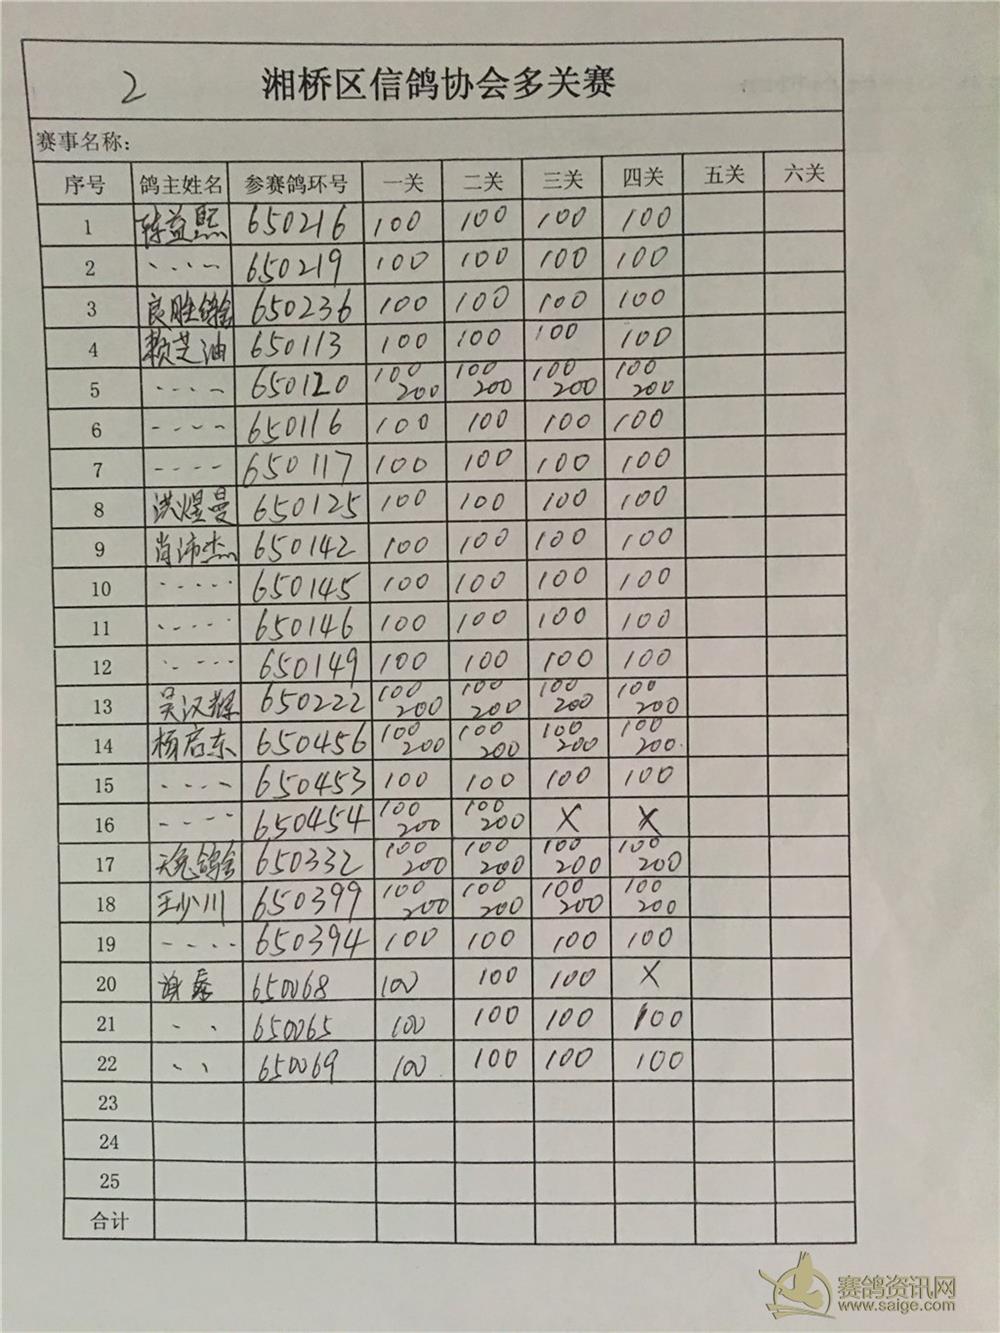 2 湘桥区信鸽协会多关赛
赛事名称:
序号 鸽主姓名 参赛鸽环号 一关 二关 三关 四关 五关 六关
1 益熙 650216 100 100 100 100
2 、、、、 650219 100 100 100 100
3 良胜鸽舍 650236 100 100 100 100
4 赖芝油 650113 100 100 100 100
5 、、、、 650120 100 200 100 200 100 200 100 200
6 、、、、 650116 100 100 100 100
7 、、、、 650117 100 100 100 100
8 洪煜曼 650125 100 100 100 100
9 肖沛杰 650142 100 100 100 100
10 、、、、 650145 100 100 100 100
11 、、、、 650146 100 100 100 100
12 、、、、 650149 100 100 100 100
13 吴汉辉 650222 100 200 100 200 100 200 100 200
14 杨启东 650456 100 200 100 200 100 200 100 200
15 、、、、 650453 100 100 100 100
16 、、、、 650454 100 200 100 200 X X
17 天兔鸽舍 650332 100 200 100 200 100 200 100 200
18 王少川 650399 100 200 100 200 100 200 100 200
19 、、、、 650394 100 100 100 100
20 650068 100 100 100 X
21 、、 650065 100 100 100 100
22 、、 650069 100 100 100 100
23
24
25
合计
赛鸽资讯网
www.saige.com